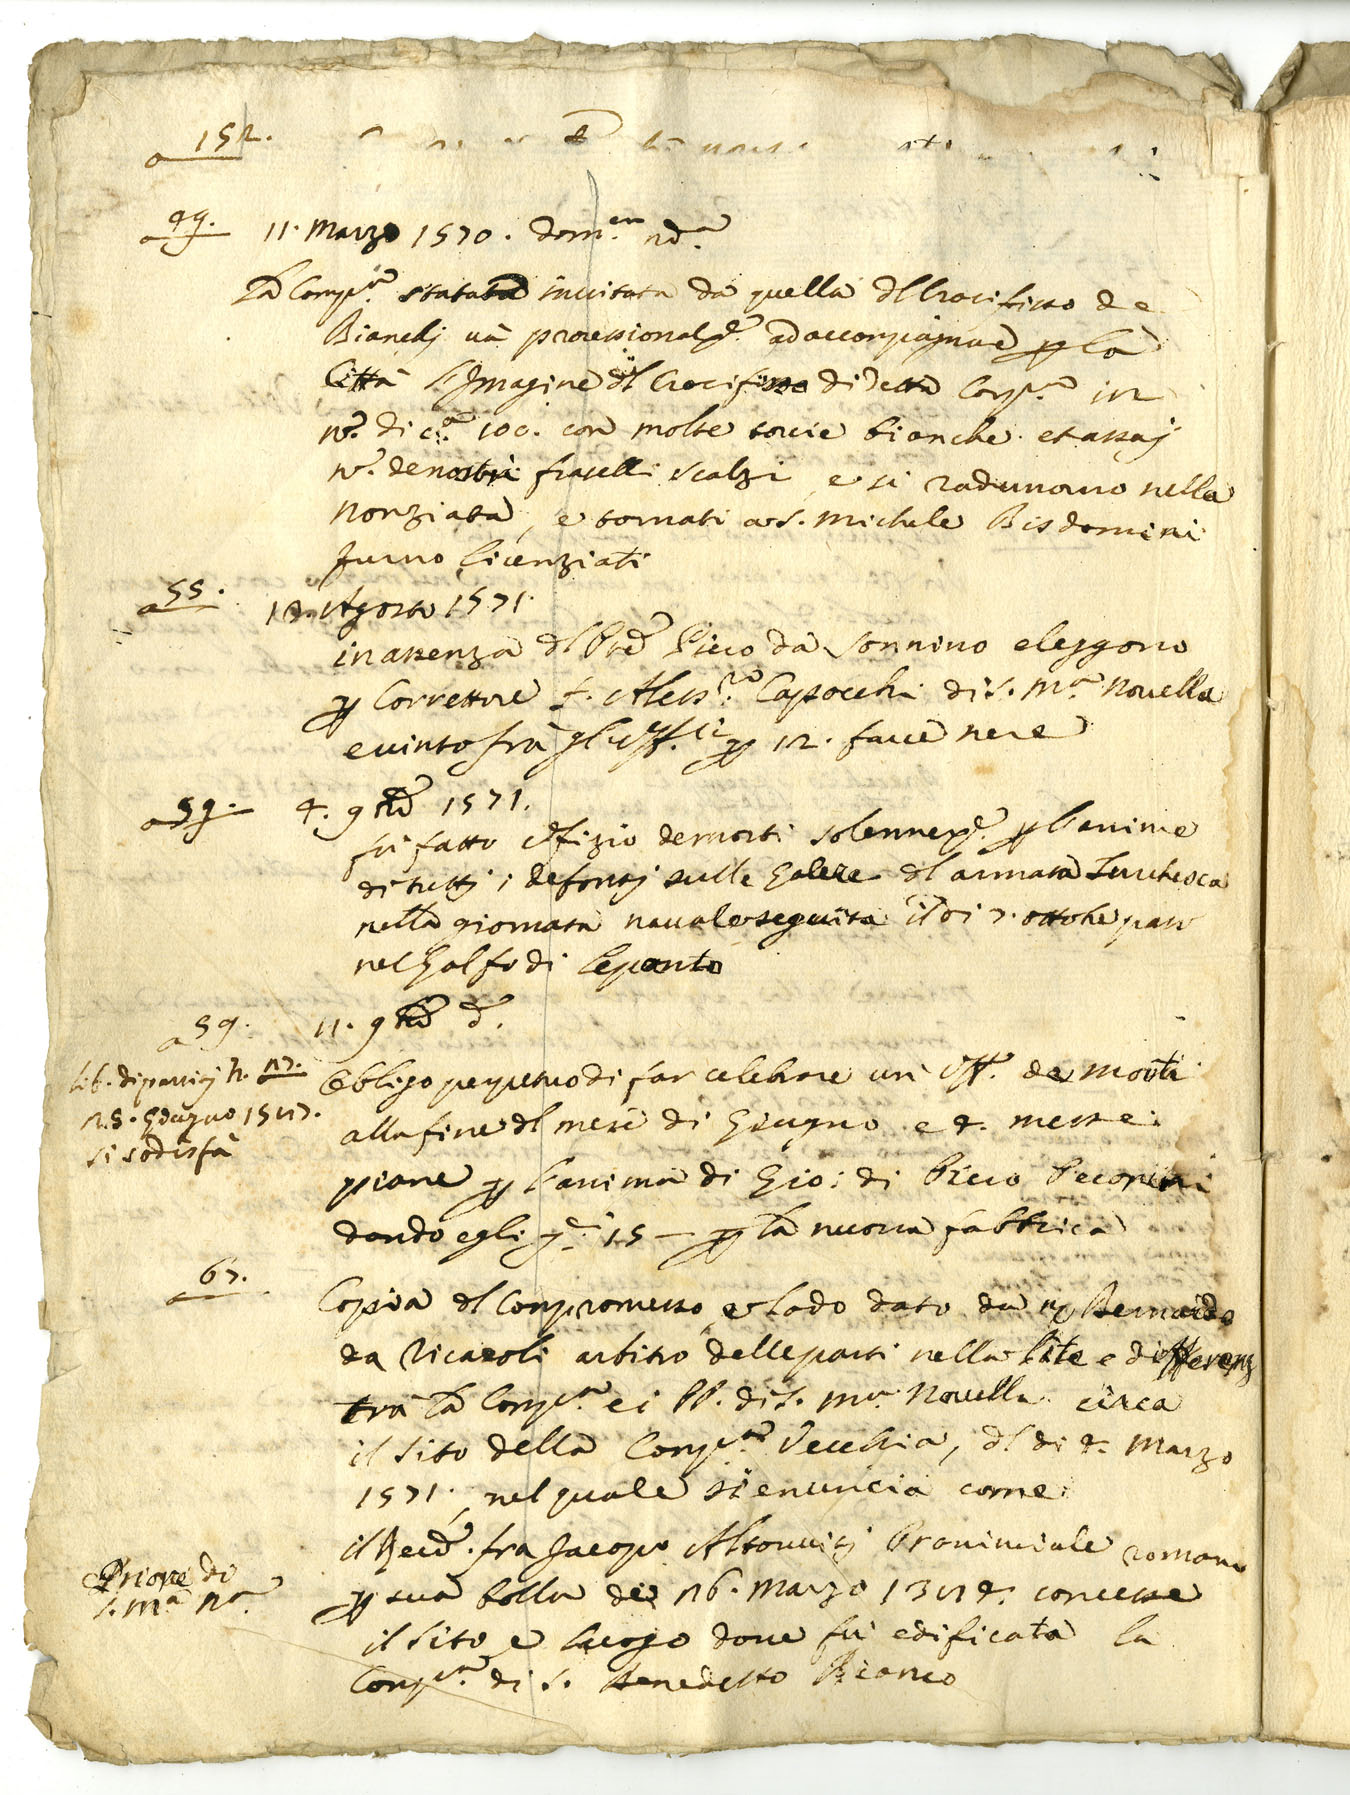 a 152.
a 49. 11. Marzo 1570. Dom.en nd.a
La Comp.a statata invitata da quella dl Crocifisso de
Bianchj và procession al ad accompagnare p la
Città l'Imagine dl Crocifisso di detta Comp.a in
n.o di c.a 100. con molte torcie bianche et assaj
n.o de nostri fratelli scalzi, e si radunorno nella
Nonziata, e tornati a S. Michele Bisdomini
furno licenziati
a 55. 12. Agosto 1571.
in assenza dl Pred Piero da Sonnino eleggono
p Correttore f. Aless.ro Capocchi di S. M.a Novella
e vinto frà gl'Uff.li p 12. fave nere
a 59. 4. 9bre 1571.
fù fatto Ofizio de morti solenne p l'anime
di tuttj i defontj sulle Galere dl armata Turchesca
nella giornata navale seguita il di 7. ottobre pass
nel Golfo di Lepanto
a 59. 11. 9bre d.o
lib. di partitj
25. Giugno
si sodisfà
Obbligo perpetuo di far celebrare un Off.o de Morti
alla fine dl mese di Giugno e 4. messe
piane p l'anima di Gio: di Piero Pecorini
dando egli 15 — p la nuova fabbrica
a 67.
Copia dl Compromesso, e Lodo dato da Bernardo
da Ricasoli arbitro delle parti nella lite e differenz
trà la Comp.a e i PP. di S. M.a Novella circa
il sito della Comp.a Vecchia, dl di 4. Marzo
1571. nel quale si enuncia come
il Recd. fra Jacopo Altovitj Provinciale romano
Priore di
S. M.a N.a
p sua bolla de 26. Marzo concesse
il sito e luogo dove fù edificata la
Comp.a di S. Benedetto Bianco